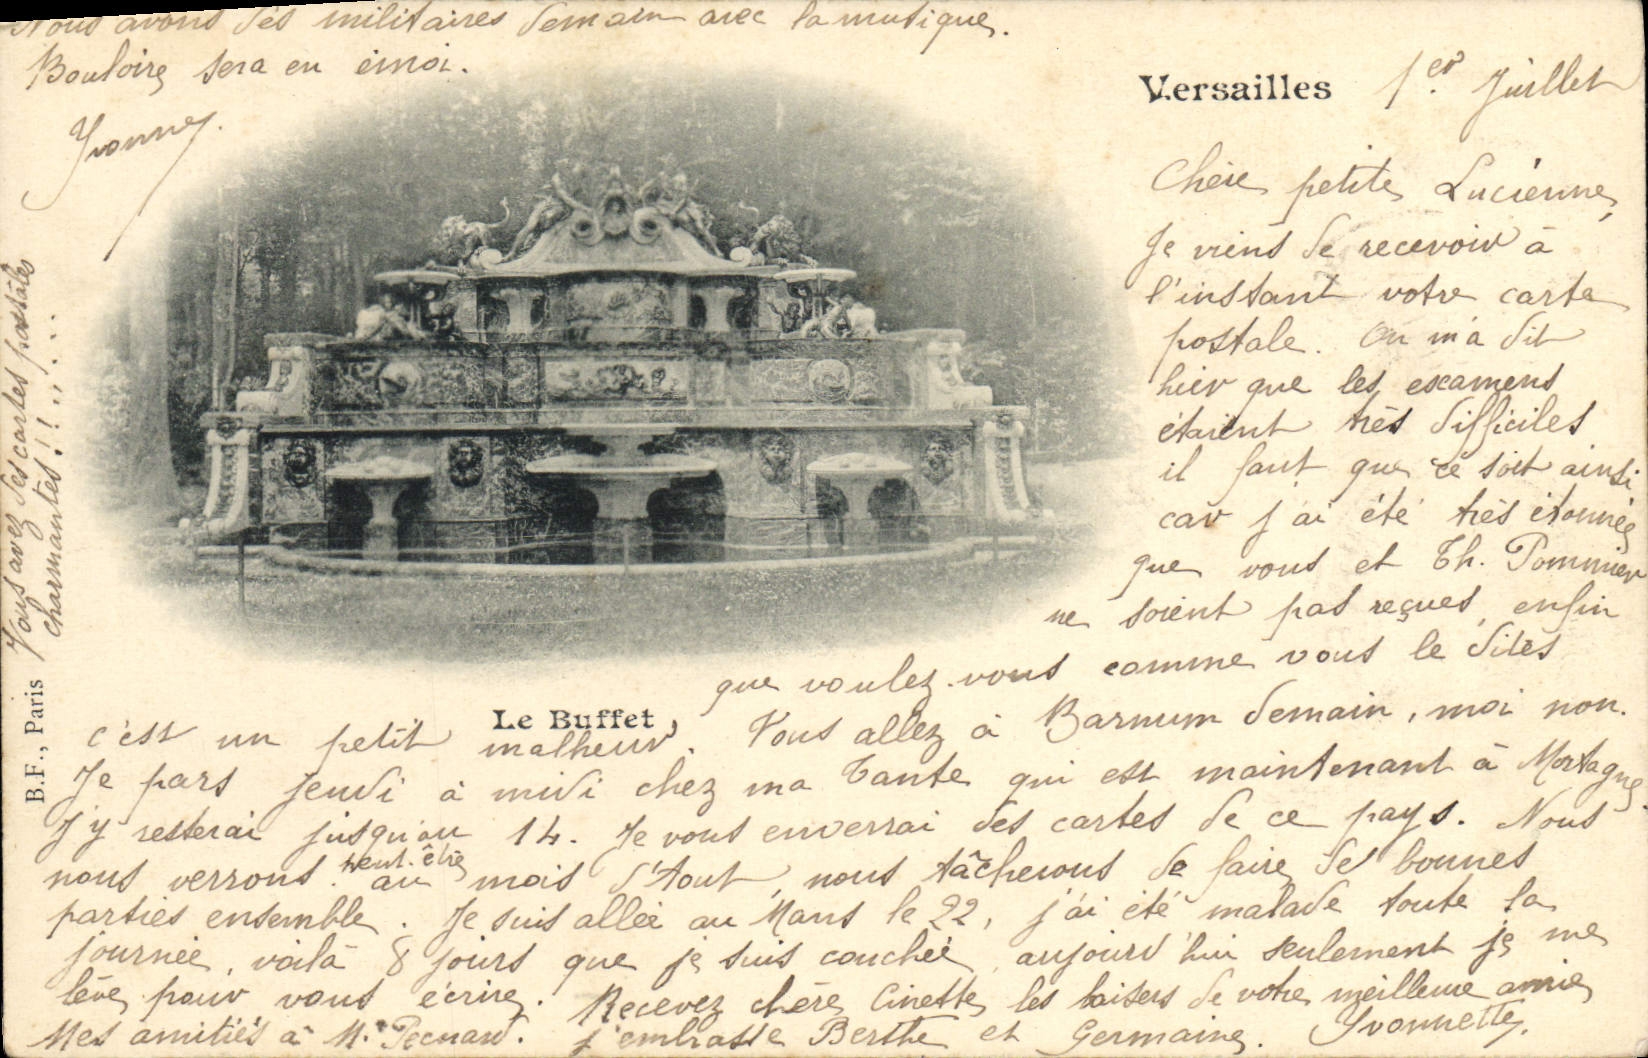 Nous avons des militaires demain avec la musique.
Bouloire sera en émoi.
Yvonne.
Versailles 1er Juillet
Chère petite Lucienne,
Je viens de recevoir à
l'instant votre carte
postale. On m'a dit
hier que les examens
étaient très difficiles
il faut que ce soit ainsi
car j'ai été très étonnée
que vous et Th. Pommier
ne soient pas reçues, enfin
que voulez-vous comme vous le dites
Le Buffet
c'est un petit malheur. Vous allez à Barnum demain, moi non.
Je pars Jeudi à midi chez ma Tante qui est maintenant à Mortagne.
J'y resterai jusqu'au 14. Je vous enverrai des cartes de ce pays. Nous
nous verrons peut-être au mois d'Aout, nous tâcherons de faire de bonnes
parties ensemble. Je suis allée au Mans le 22, j'ai été malade toute la
journée, voilà 8 jours que je suis couchée, aujourd'hui seulement je me
lève pour vous écrire. Recevez chère Cinette les baisers de votre meilleure amie
Mes amitiés à M. Pecnard. j'embrasse Berthe et Germaine. Yvonnette.
Vous avez des cartes postales
charmantes!!!!....
B.F., Paris